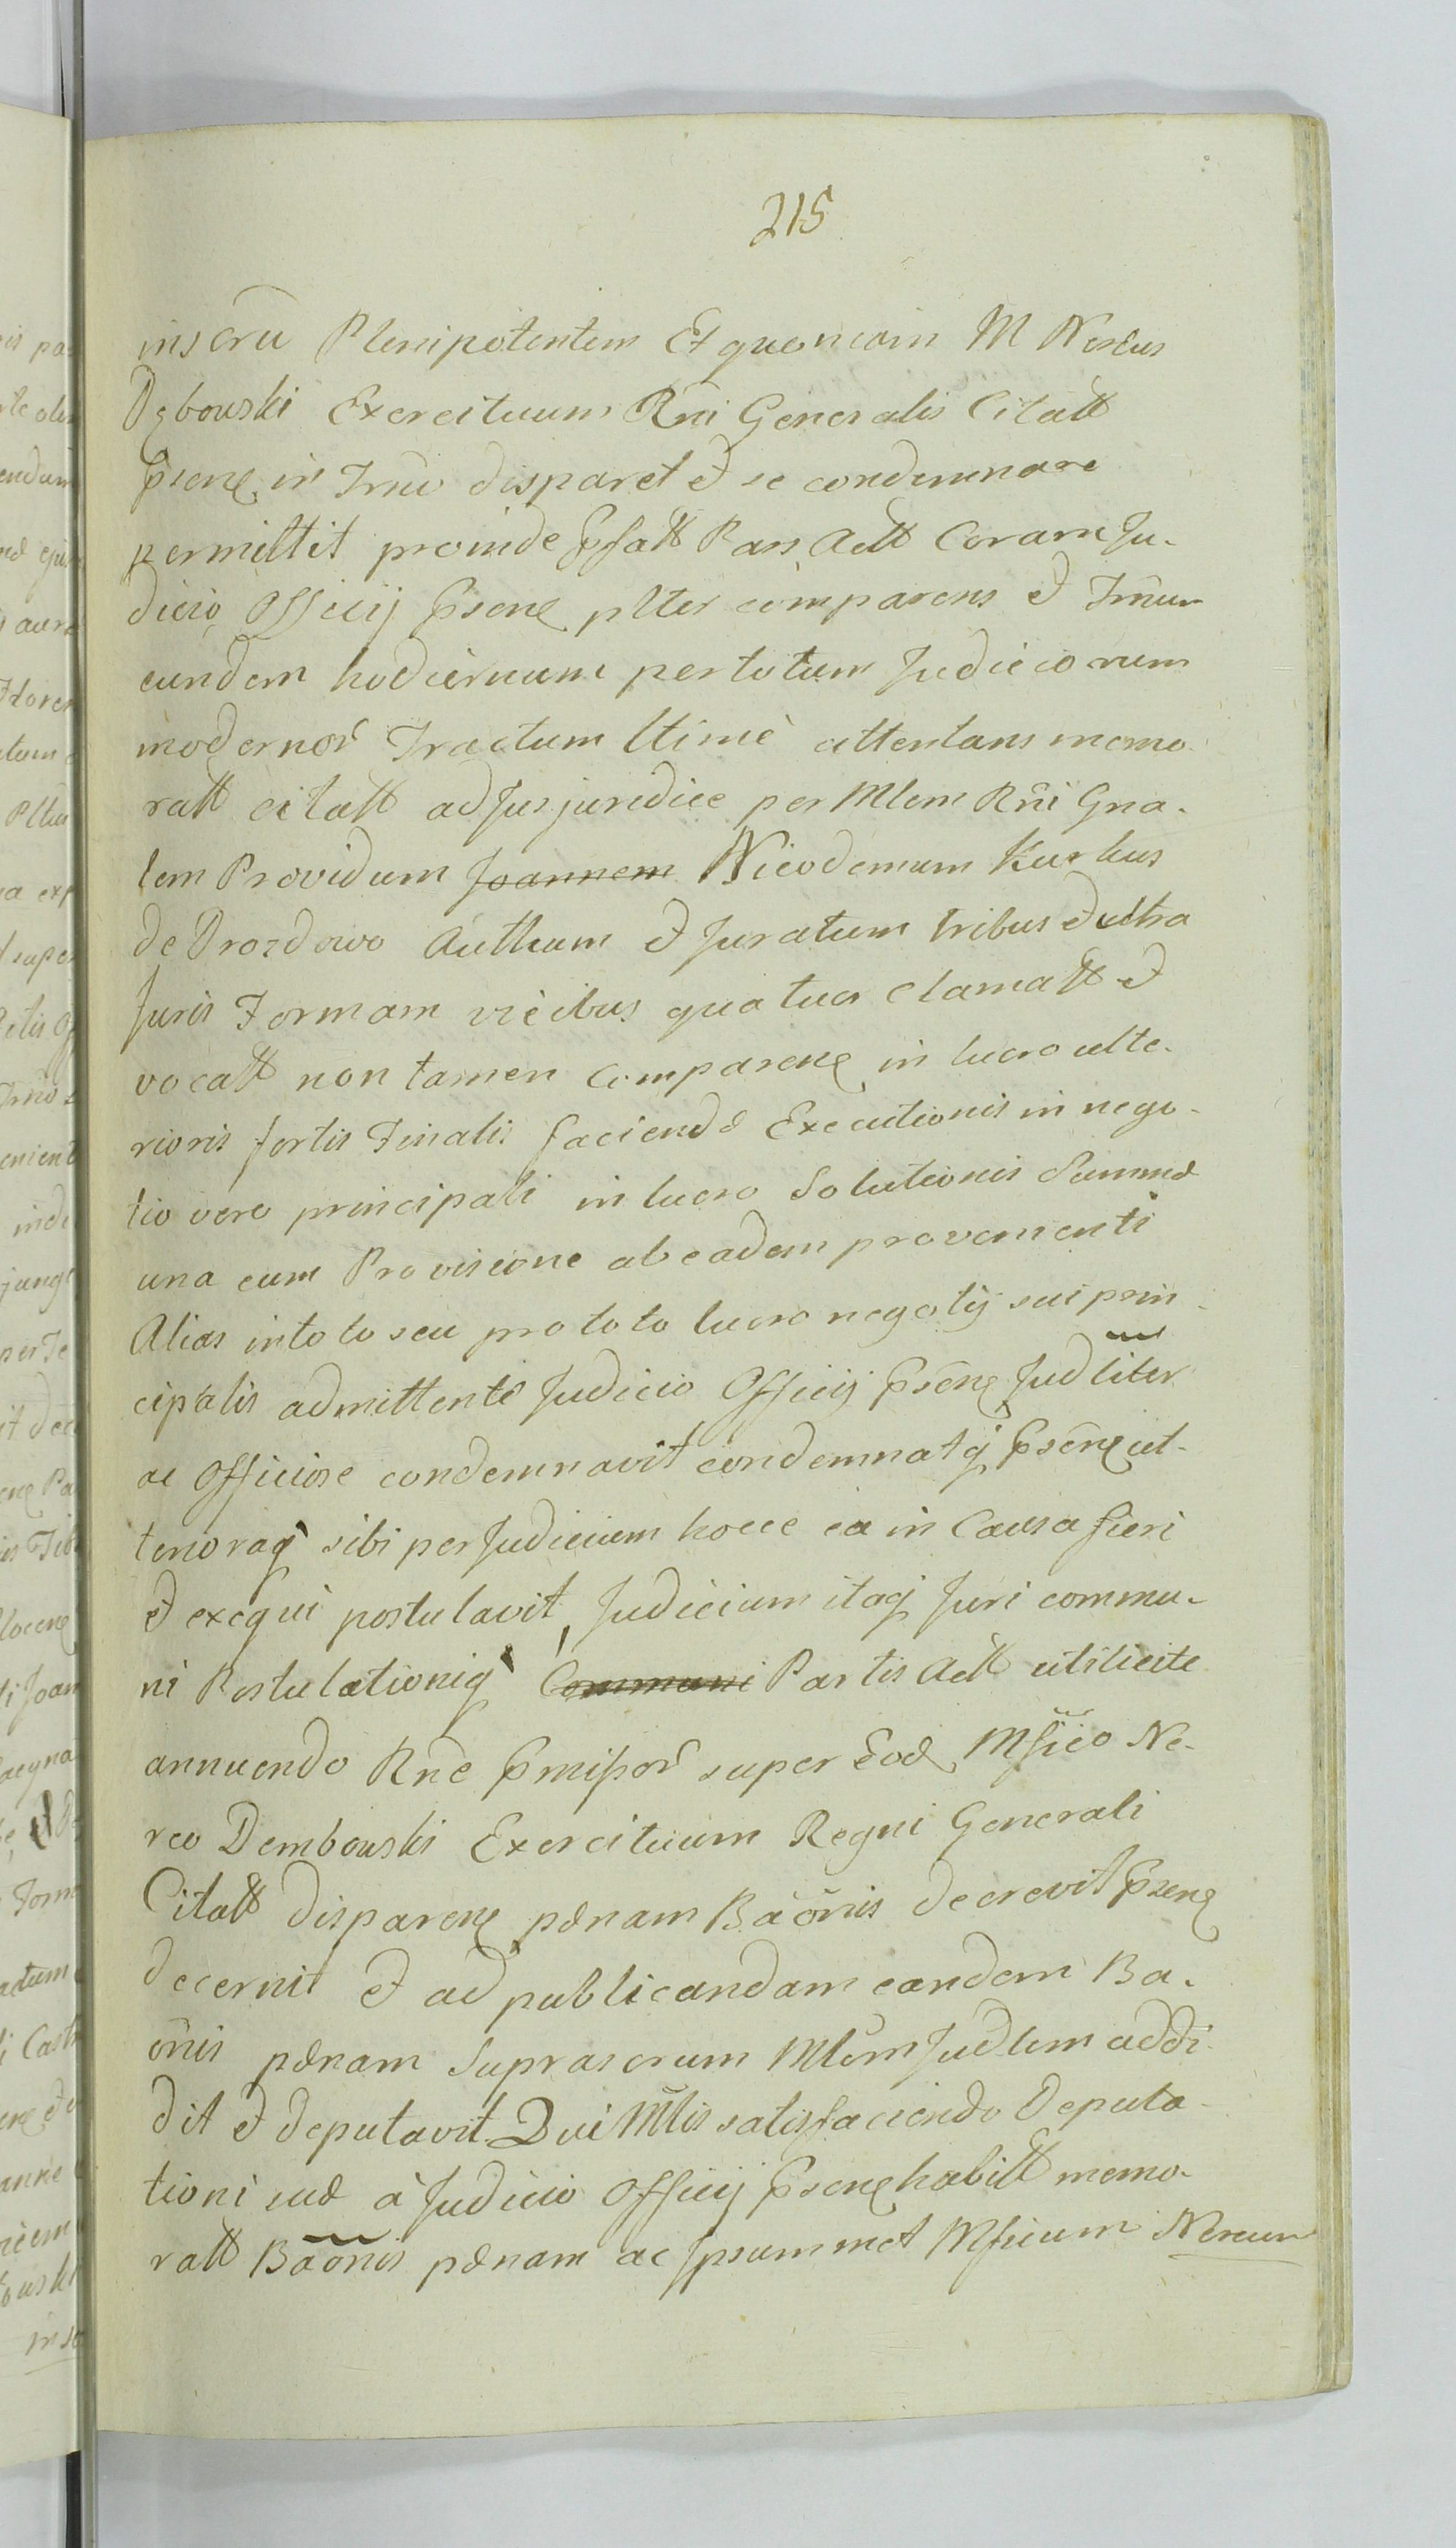 215
inscrũ Plenipotentem Et quoniam M Nereus
Dębowski Exercituum Rñi Generalis Citatt
Psenę in Trno disparet et se condemnare
permittit proinde Psatt Pars Actt Coram Ju-
dicio Officij Psenę plter comparens et Trnum
eundem hodiernum per totum Judiciorum
modernor Tractum ltime attentans memo-
ratt citatt ad Jus juridice per Mlem Rñi Gna-
lem Providum Joannem Nicodemum Kurkus
de Drozdowo Authum et Juratum tribus et ultra
Juris Formam vicibus quatuor clamatt et
vocatt non tamen comparenę in lucro ulte-
rioris fortis Finalis faciendæ Executionis in nego-
tio vero principali in lucro Solutionis Summæ
una cum Provisione ab eadem provenienti
Alias in toto seu pro toto lucro negotij sui prin-
cipalis admittente Judicio Officij Psenę Judliter
ac Officiose condemnavit condemnatq Psenę ut-
tenoraq sibi per Judicium hocce ea in Causa fieri
et exequi postulavit, Judicium itaq Juri commu-
ni Postulationiq Communi Partis Actt utilicite
annuendo Rne Pmissor super Eod Mfico Ne-
reo Dembowski Exercituum Regni Generali
Citatt disparenę pænam Bãonis decrevit Psenę
decernit et ad publicandam eandem Ba-
onis pænam Suprascrum Mlem Judlem addi-
dit et deputavit Qui Mlis satisfaciendo Deputa-
tioni suæ à Judicio Officij Psenę habitt memo-
ratt Bãonis pænam ac Ipsummet Mficum Nereum